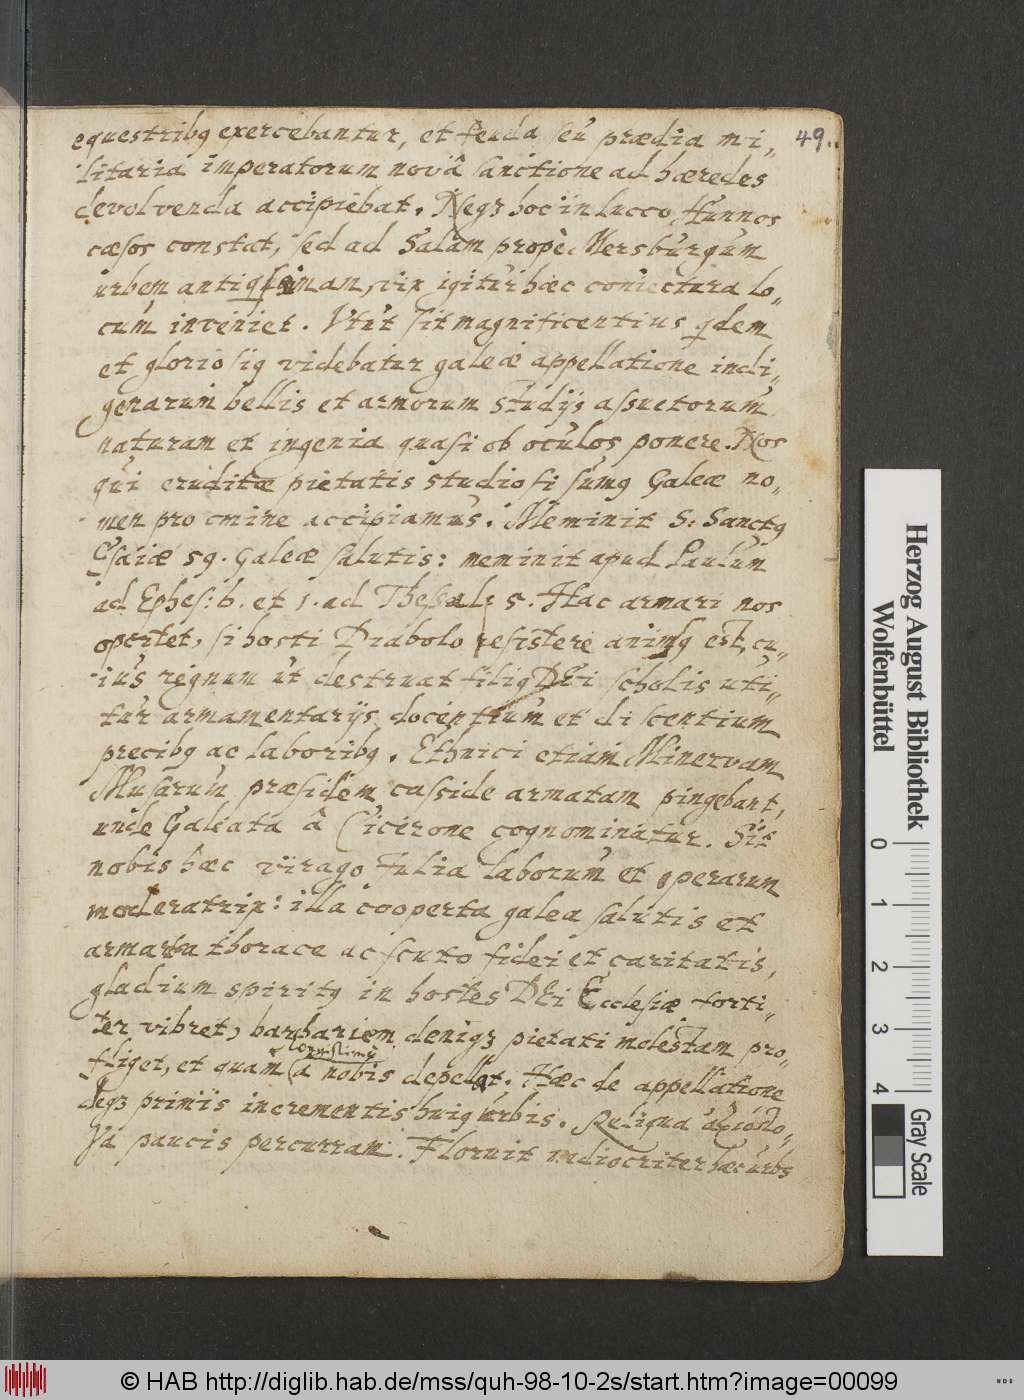 49.
equestribq exercebantur, et feuda seu prædia mi„
litaria imperatorum novâ sanctione ad hæredes
devolvenda accipiebat. Neqz hoc in lucco Hunnos
cæsos constat, sed ad Salam propè Mersburgum
urbem vix igitur hæc coniectura lo„
cum inveniet. Utut sit magnificentius qdem
et gloriosiq videbatur galeæ appellatione indi„
genarum bellis et armorum studijs assuetorum
naturam et ingenia quasi ob oculos ponere. Nos
qui eruditæ pietatis studiosi sumq Galeæ no„
men pro omine accipiamus. Meminit S: Sanctq
Esaiæ 59. Galeæ salutis: meminit apud Paulum
ad Ephes: 6. et 1. ad Thessal: 5. Hac armari nos
oportet, si hosti Diabolo resistere animq est, cu„
ius regnum ut destruat filiq DEi scholis uti„
tur armamentarijs docentium et discentium
precibq ac laboribq. Ethnici etiam Minervam
Musarum præsidem casside armatam pingebant,
unde Galeata â Cicerone cognominatur. Sit
nobis hæc virago Julia laborum et operarum
moderatrix: illa cooperta galea salutis et
armata thorace ac scuto fidei et caritatis,
gladium spiritq in hostes DEi Ecclesiæ forti„
ter vibret, barbariem deniqz pietati molestam pro„
fliget, et quam longissimè à nobis depellat. Hæc de appellatione
deqz primis incrementis huiq urbis. Reliqua
paucis percurram. Floruit mediocriter hæc urbs
Herzog August Bibliothek
Wolfenbüttel
0 1 2 3 4
Gray Scale
© HAB http://diglib.hab.de/mss/quh-98-10-2s/start.htm?image=00099